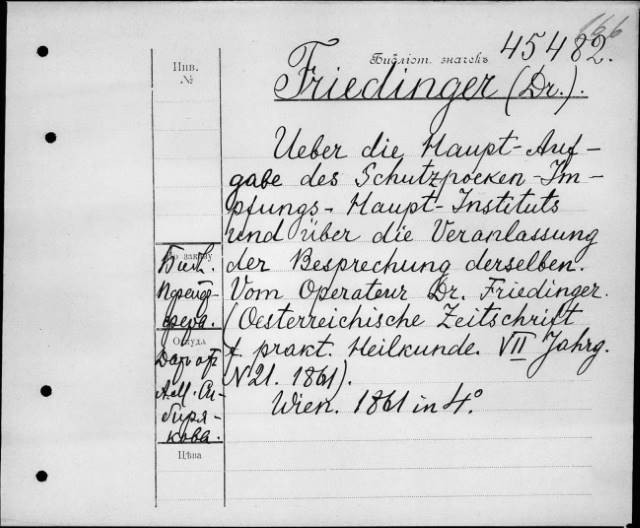 Инв. №
Библіот. значекъ 45482.
Friedinger (Dr.).
Ueber die Haupt-Auf-
gabe des Schutzpocken-Im-
pfungs-Haupt-Instituts
und über die Veranlassung
der Besprechung derselben.
Vom Operateur Dr. Friedinger.
(Oesterreichische Zeitschrift
f. prakt. Heilkunde. VII Jahrg.
N 21. 1861).
Wien. 1861 in 4.°
По заказу
Библ.
Пфейф-
фера.
Откуда
Даръ отъ
А.М. Си-
биря-
кова.
Цѣна